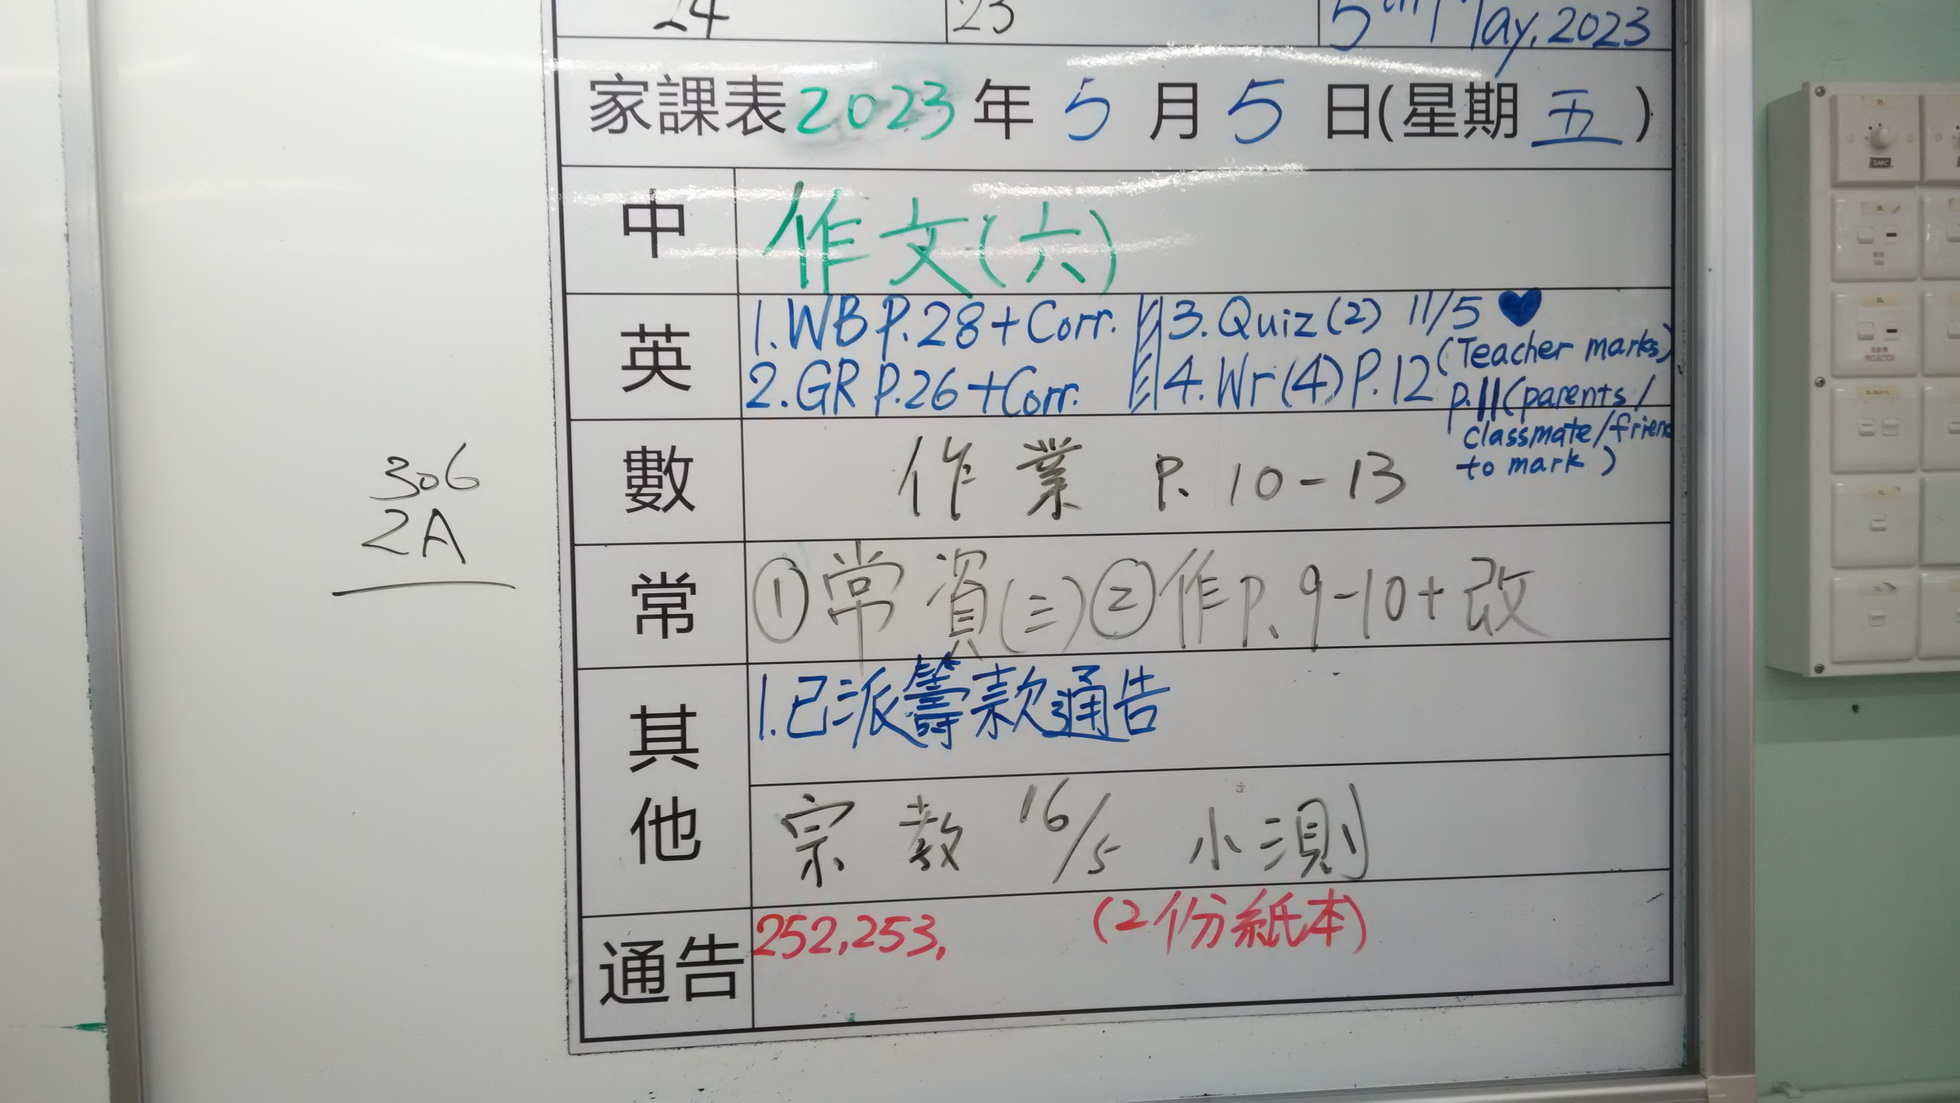 24 23 5th May, 2023
家課表 2023 年 5 月 5 日(星期 五 )
中 作文(六)
英 1. WB P.28 + Corr. 3. Quiz (2) 11/5 ♥
2. GR P.26 + Corr. 4. Wr (4) P.12 (Teacher marks)
p.11 (parents/
classmate/friend
to mark)
數 作業 P. 10-13
306
2A
常 ①常資(三)②作P. 9-10+改
其他 1. 已派籌款通告
宗教 16/5 小測
通告 252, 253, (2份紙本)